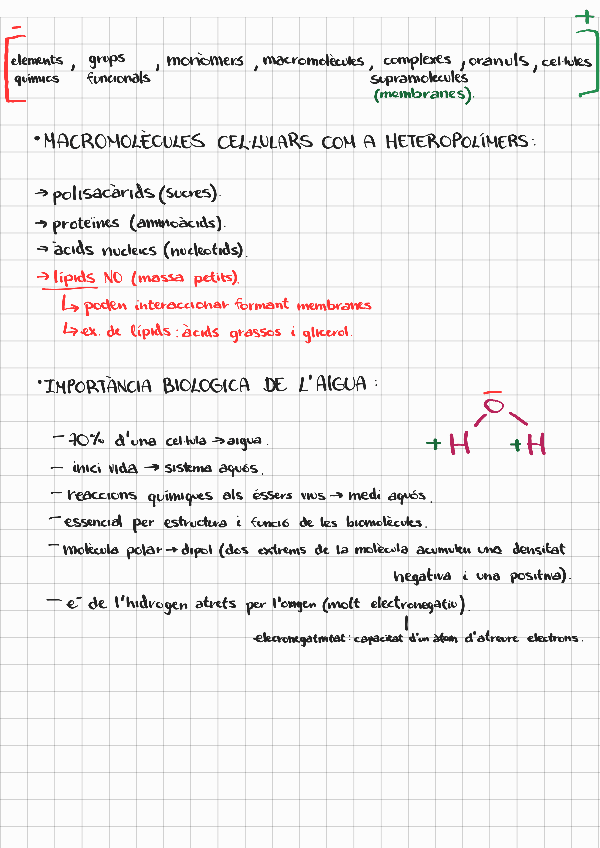 − +
elements , grups , monòmers , macromolècules , complexes , orànuls , cel·lules
químics funcionals supramolecules
(membranes).
· MACROMOLÈCULES CEL·LULARS COM A HETEROPOLÍMERS:
→ polisacàrids (sucres).
→ proteïnes (aminoàcids).
→ àcids nucleics (nucleotids).
→ lípids NO (massa petits).
↳ poden interaccionar formant membranes
↳ ex. de lípids: àcids grassos i glicerol.
· IMPORTÀNCIA BIOLOGICA DE L'AIGUA:
− O
+ H + H
− 70% d'una cel·lula → aigua.
− inici vida → sistema aquós.
− reaccions químiques als éssers vius → medi aquós.
− essencial per estructura i funció de les biomolècules.
− molècula polar → dipol (dos extrems de la molècula acumulen una densitat
negativa i una positiva).
− e⁻ de l'hidrogen atrets per l'oxigen (molt electronegatiu).
elecronegativitat: capacitat d'un àtom d'atreure electrons.